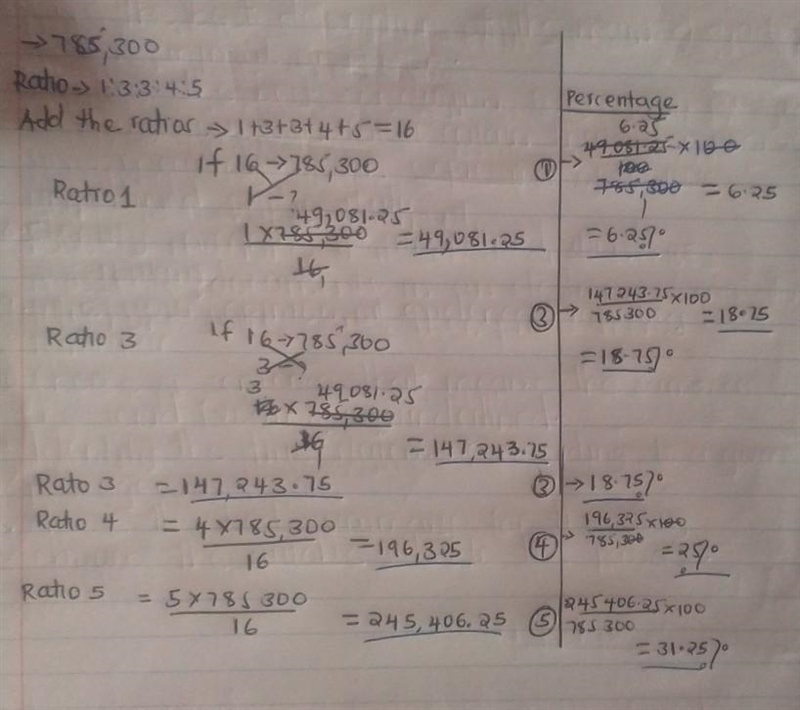 → 785,300
Ratio → 1:3:3:4:5
Add the ratios → 1+3+3+4+5 = 16
If 16 → 785,300
Ratio 1
1 – ?
49,081.25
1 × 785,300 = 49,081.25
16
Ratio 3
If 16 → 785,300
3 – ?
3 49,081.25
× 785,300
16
= 147,243.75
Rato 3 = 147,243.75
Ratio 4 = 4 × 785,300
16
= 196,325
Ratio 5 = 5 × 785 300
16
= 245,406.25
Percentage
6.25
① → 49081.25 × 100
100
785,300 = 6.25
1
= 6.25%
③ → 147243.75 × 100
785300 = 18.75
= 18.75%
③ → 18.75%
④ → 196,325 × 100
785,300
= 25%
⑤ 245 406.25 × 100
785 300
= 31.25%